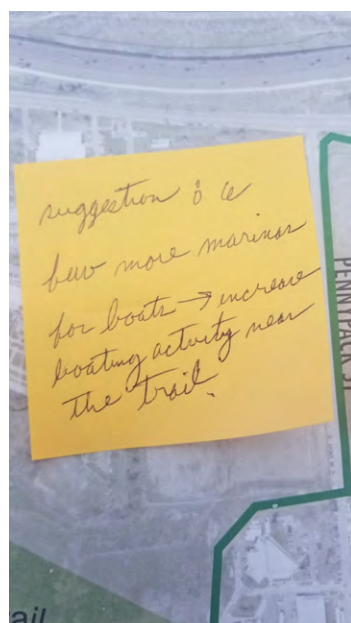 suggestion : a
few more marinas
for boats → increase
boating activity near
the trail.
PENNYPACK S
ail